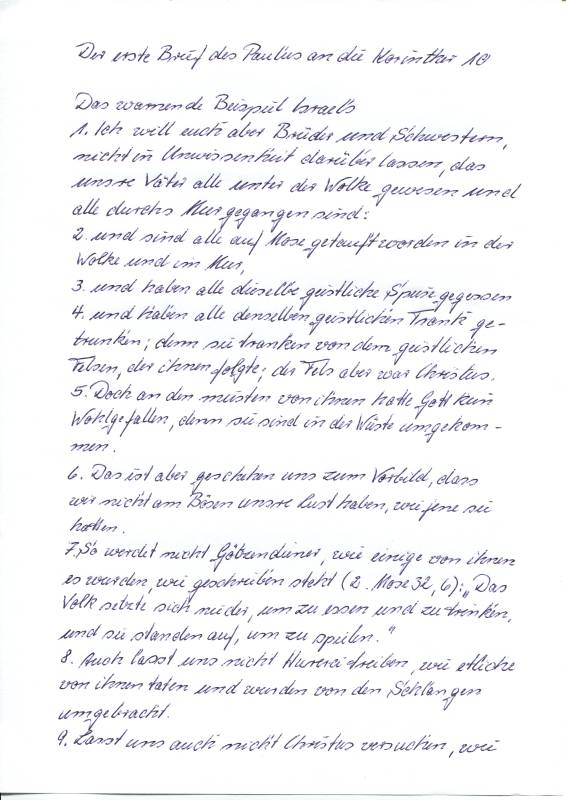 Der erste Brief des Paulus an die Korinther 10
Das warnende Beispiel Israels
1. Ich will euch aber Brüder und Schwestern,
nicht in Unwissenheit darüber lassen, das
unsre Väter alle unter der Wolke gewesen und
alle durchs Meer gegangen sind:
2. und sind alle auf Mose getauft worden in der
Wolke und im Meer,
3. und haben alle dieselbe geistliche Speise gegessen
4. und haben alle denselben geistlichen Trank ge-
trunken; denn sie tranken von dem geistlichen
Felsen, der ihnen folgte; der Fels aber war Christus.
5. Doch an den meisten von ihnen hatte Gott kein
Wohlgefallen, denn sie sind in der Wüste umgekom-
men.
6. Das ist aber geschehen uns zum Vorbild, dass
wir nicht am Bösen unsre Lust haben, wie jene sie
hatten.
7. So werdet nicht Götzendiener, wie einige von ihnen
es wurden, wie geschrieben steht (2. Mose 32, 6): „Das
Volk setzte sich nieder, um zu essen und zu trinken,
und sie standen auf, um zu spielen."
8. Auch lasst uns nicht Hurerei treiben, wie etliche
von ihnen taten und wurden von den Schlangen
umgebracht.
9. Lasst uns auch nicht Christus versuchen, wie